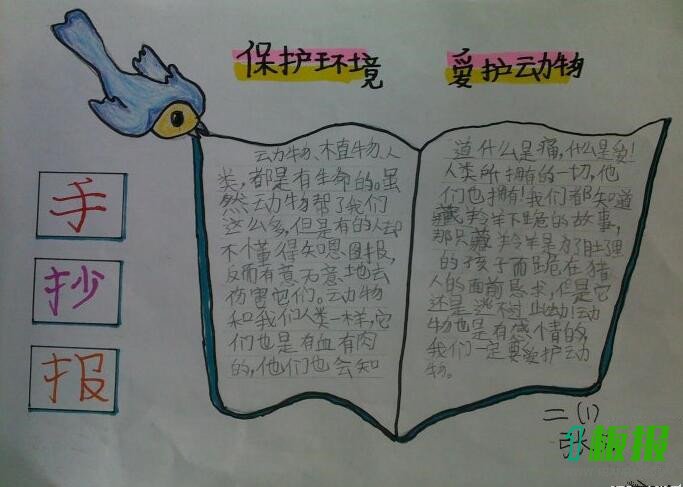 保护环境
爱护动物
手
抄
报
动物、植物、人
类,都是有生命的。虽
然动物帮了我们
这么多,但是有的人却
不懂得知恩图报,
反而有意无意地去
伤害它们。动物
和我们人类一样,它
们也是有血有肉
的,他们也会知
道什么是痛,什么是爱!
人类所拥有的一切,他
们也拥有!我们都知道
藏羚羊下跪的故事,
那只藏羚羊是为了肚里
的孩子而跪在猎
人的面前恳求,但是它
还是逃不过此劫!动
物也是有感情的,
我们一定要爱护动
物。
二(1)
张
板报